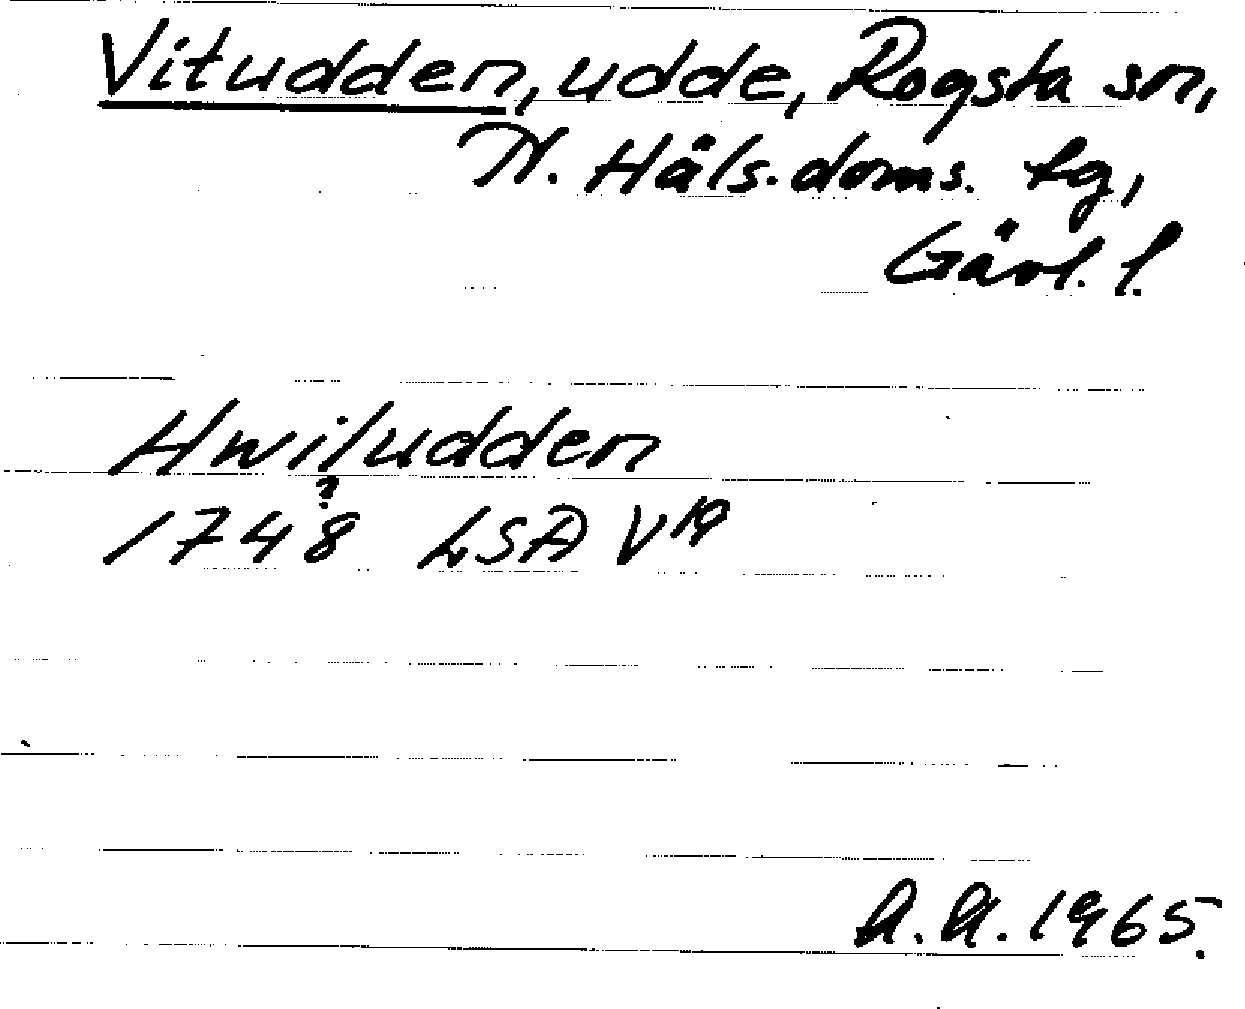 Vitudden, udde, Rogsta sn,
N. Häls. doms. tg,
Gävl. l.
Hwiludden
?
1748 LSA V 19
A.A. 1965.